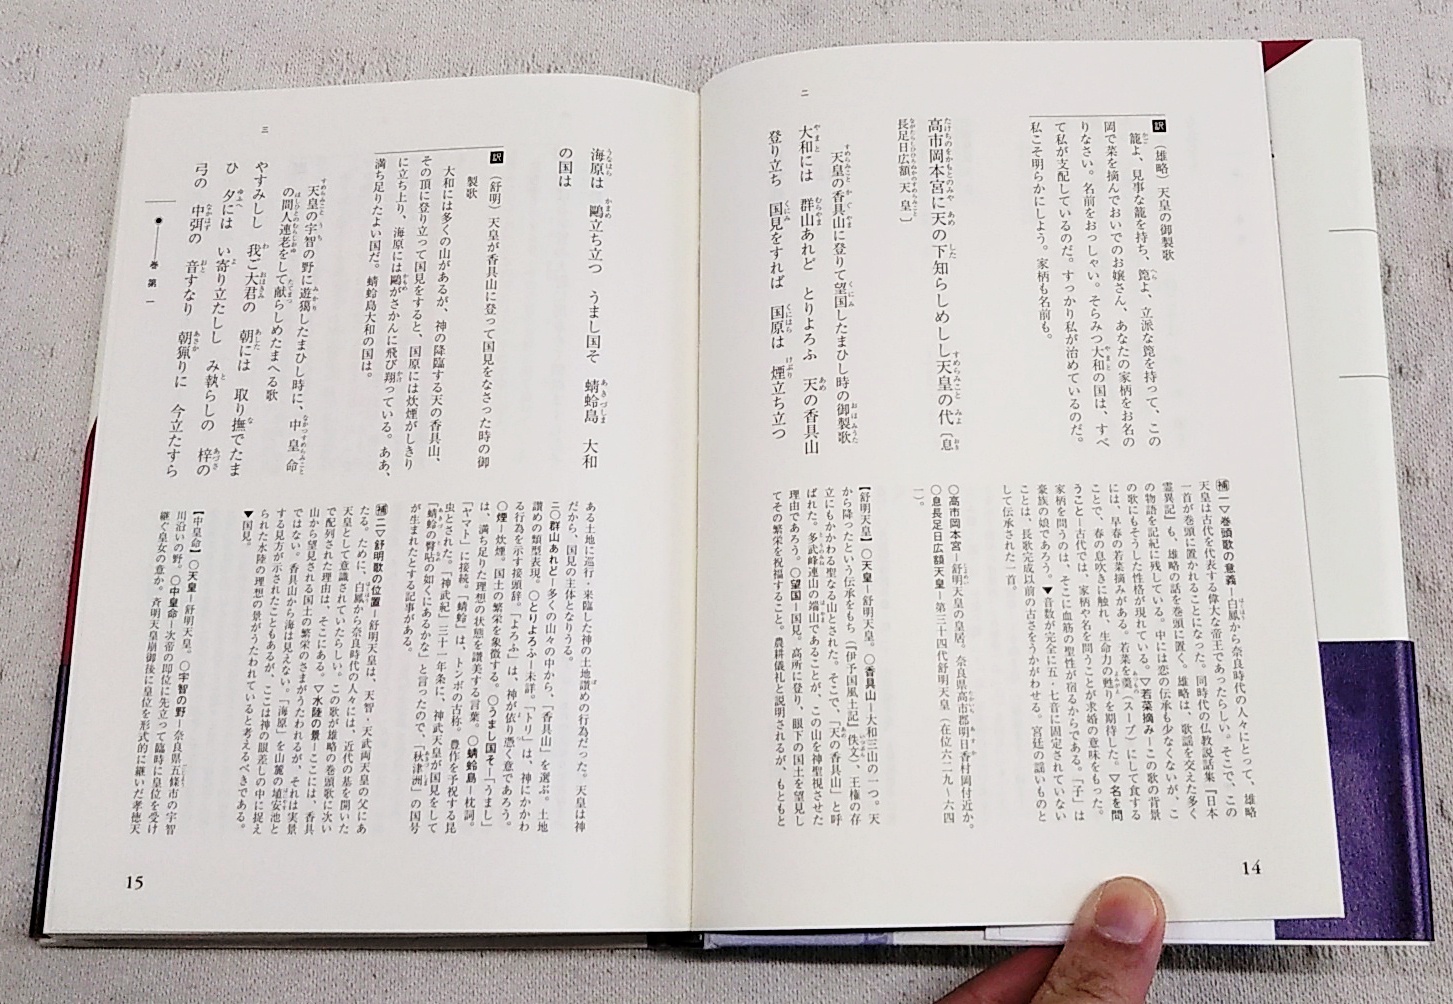 訳 (雄略)天皇の御製歌
籠よ、見事な籠を持ち、箆よ、立派な箆を持って、この
岡で菜を摘んでおいでのお嬢さん、あなたの家柄をお名の
りなさい。名前をおっしゃい。そらみつ大和の国は、すべ
て私が支配しているのだ。すっかり私が治めているのだ。
私こそ明らかにしよう。家柄も名前も。
高市岡本宮に天の下知らしめしし天皇の代〔息
長足日広額天皇〕
二
天皇の香具山に登りて望国したまひし時の御製歌
大和には 群山あれど とりよろふ 天の香具山
登り立ち 国見をすれば 国原は 煙立ち立つ
補一▽巻頭歌の意義―白鳳から奈良時代の人々にとって、雄略
天皇は古代を代表する偉大な帝王であったらしい。そこで、この
一首が巻頭に置かれることになった。同時代の仏教説話集『日本
霊異記』も、雄略の話を巻頭に置く。雄略は、歌謡を交えた多く
の物語を記紀に残している。中には恋の伝承も少なくないが、こ
の歌にもそうした性格が現れている。▽若菜摘み―この歌の背景
には、早春の若菜摘みがある。若菜を羹(スープ)にして食する
ことで、春の息吹きに触れ、生命力の甦りを期待した。▽名を問
うこと―古代では、家柄や名を問うことが求婚の意味をもった。
家柄を問うのは、そこに血筋の聖性が宿るからである。「子」は
豪族の娘であろう。▼音数が完全に五・七音に固定されていない
ことは、長歌完成以前の古さをうかがわせる。宮廷の謡いものと
して伝承された一首。
○高市岡本宮―舒明天皇の皇居。奈良県高市郡明日香村岡付近か。
○息長足日広額天皇―第三十四代舒明天皇(在位六二九〜六四
一)。
【舒明天皇】○天皇―舒明天皇。○香具山―大和三山の一つ。天
から降ったという伝承をもち(『伊予国風土記』佚文)、王権の存
立にもかかわる聖なる山とされた。そこで、「天の香具山」と呼
ばれた。多武峰連山の端山であることが、この山を神聖視させた
理由であろう。○望国―国見。高所に登り、眼下の国土を望見し
てその繁栄を祝福すること。農耕儀礼と説明されるが、もともと
14
海原は 鷗立ち立つ うまし国そ 蜻蛉島 大和
の国は
訳 (舒明)天皇が香具山に登って国見をなさった時の御
製歌
大和には多くの山があるが、神の降臨する天の香具山、
その頂に登り立って国見をすると、国原には炊煙がしきり
に立ち上り、海原には鷗がさかんに飛び翔っている。ああ、
満ち足りたよい国だ。蜻蛉島大和の国は。
三
天皇の宇智の野に遊猟したまひし時に、中皇命
の間人連老をして献らしめたまへる歌
やすみしし 我ご大君の 朝には 取り撫でたま
ひ 夕には い寄り立たしし み執らしの 梓の
弓の 中弭の 音すなり 朝猟りに 今立たすら
巻第一
ある土地に巡行・来臨した神の土地讃めの行為だった。天皇は神
だから、国見の主体となりうる。
二○群山あれど―多くの山々の中から、「香具山」を選ぶ。土地
讃めの類型表現。○とりよろふ―未詳。「トリ」は、神にかかわ
る行為を示す接頭辞。「よろふ」は、神が依り憑く意であろう。
○煙―炊煙。国土の繁栄を象徴する。○うまし国そ―「うまし」
は、満ち足りた理想の状態を讃美する言葉。○蜻蛉島―枕詞。
「ヤマト」に接続。「蜻蛉」は、トンボの古称。豊作を予祝する昆
虫とされた。「神武紀」三十一年条に、神武天皇が国見をして
「蜻蛉の臀呫の如くにあるかな」と言ったので、「秋津洲」の国号
が生まれたとする記事がある。
補二▽舒明歌の位置―舒明天皇は、天智・天武両天皇の父にあ
たる。ために、白鳳から奈良時代の人々には、近代の基を開いた
天皇として意識されていたらしい。この歌が雄略の巻頭歌に次い
で配列された理由は、そこにある。▽水陸の景―ここには、香具
山から望見される国土の繁栄のさまがうたわれるが、それは実景
ではない。香具山から海は見えない。「海原」を山麓の埴安池と
する見方が示されたこともあるが、ここは神の眼差しの中に捉え
られた水陸の理想の景がうたわれていると考えるべきである。
▼国見。
【中皇命】○天皇―舒明天皇。○宇智の野―奈良県五條市の宇智
川沿いの野。○中皇命―次帝の即位に先立って臨時に皇位を受け
継ぐ皇女の意か。斉明天皇崩御後に皇位を形式的に継いだ孝徳天
15